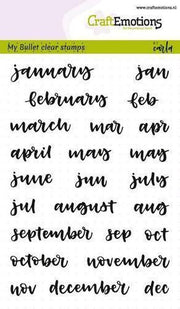 www.craftemotions.nl
CraftEmotions
My Bullet clear stamps
by carla
january jan
february feb
march mar apr
april may may
june jun july
jul august aug
september sep oct
october november
nov december dec